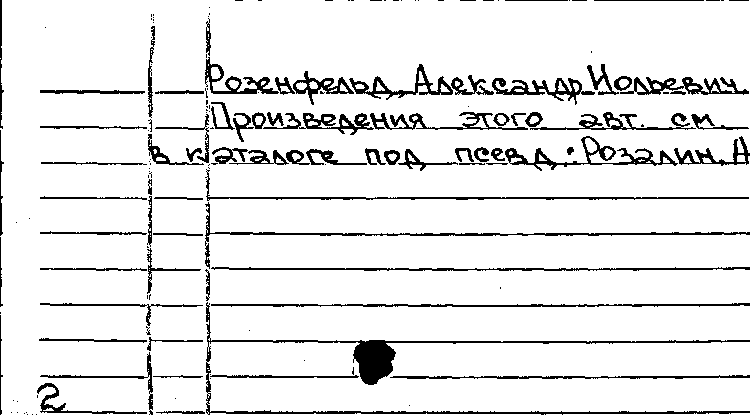 Розенфельд, Александр Иольевич.
Произведения этого авт. см.
в каталоге под псевд.: Розалин, А
2